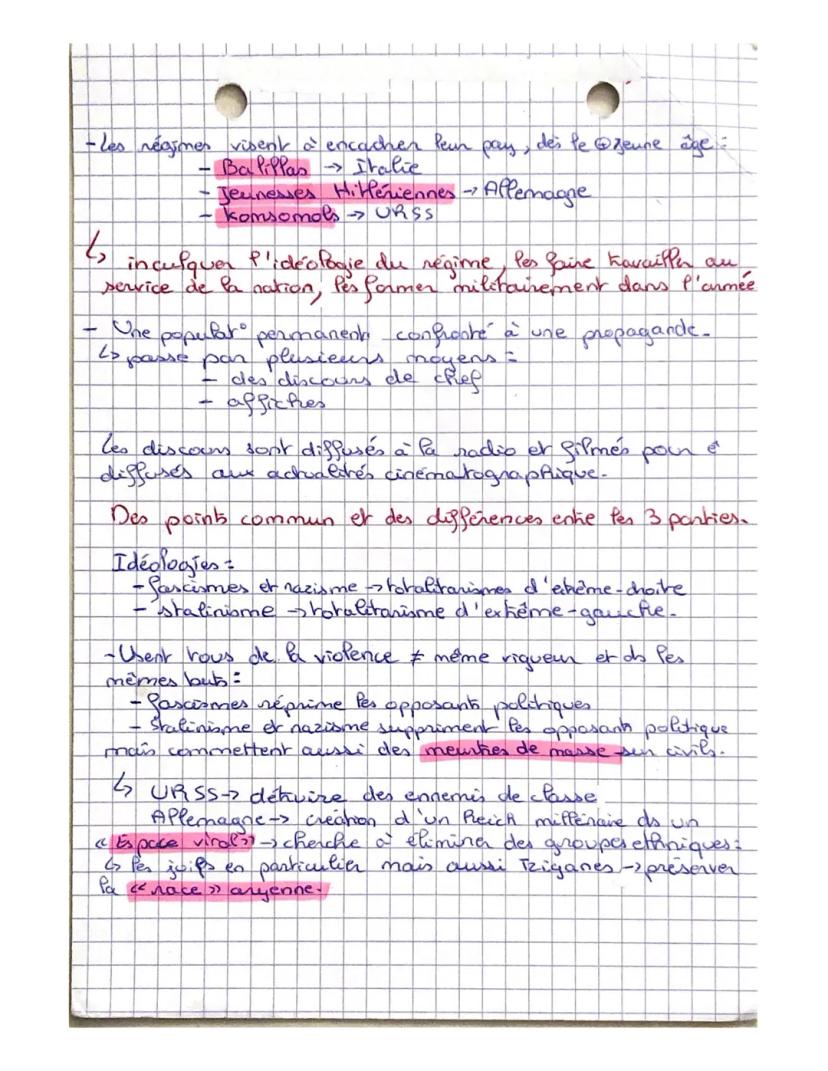 - Les régimes visent à encadrer leur pays, dès le ⊕ jeune âge :
- Balillas → Italie
- Jeunesses Hitlériennes → Allemagne
- Komsomols → URSS
↳ inculquer l'idéologie du régime, les faire travailler au
service de la nation, les former militairement dans l'armée
- Une populat° permanent confronté à une propagande.
↳ passe par plusieurs moyens :
- des discours de chef
- affiches
Les discours sont diffusés à la radio et filmés pour ê
diffusés aux actualités cinématographique.
Des points commun et des différences entre les 3 parties.
Idéologies :
- fascismes et nazisme → totalitarismes d'extrême-droite
- stalinisme → totalitarisme d'extrême-gauche.
- Usent tous de la violence ≠ même vigueur et ds les
mêmes buts :
- fascismes réprime les opposants politiques
- Stalinisme et nazisme suppriment les opposants politique
mais commettent aussi des meurtres de masse sur civils.
↳ URSS → détruire des ennemis de classe
Allemagne → création d'un Reich millénaire ds un
« Espace vital » → cherche à éliminer des groupes ethniques :
↳ les juifs en particulier mais aussi Tziganes → préserver
la « race » aryenne.